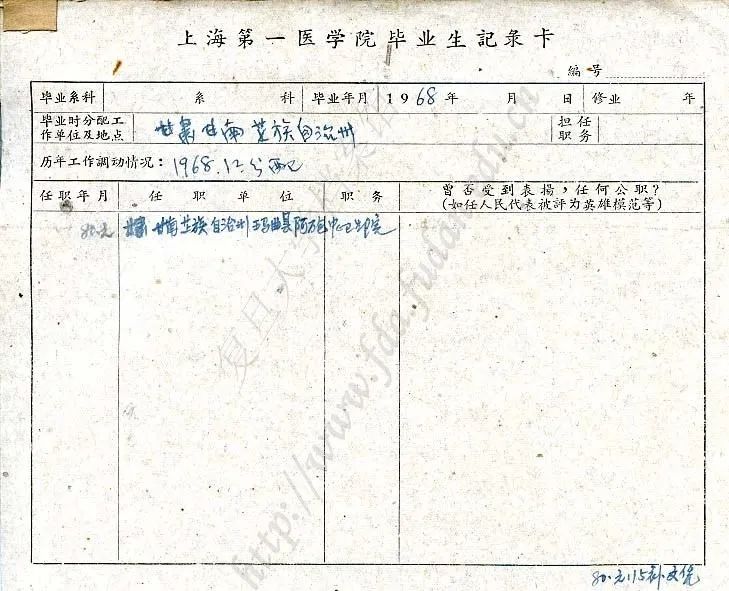 上海第一医学院毕业生記录卡
編号
毕业系科 系 科 毕业年月 1968年 月 日 修业 年
毕业时分配工作单位及地点 甘肃甘南芷族自治州 担任职务
历年工作調动情况： 1968.12分配
任职年月 任职单位 职务 曾否受到表揚，任何公职？
(如任人民代表被評为英雄模范等)
80.元 甘肃甘南芷族自治州玛曲县阿万仓中心卫生院
80.元.15补
复旦大学档案馆
http://www.fda.fudan.edu.cn